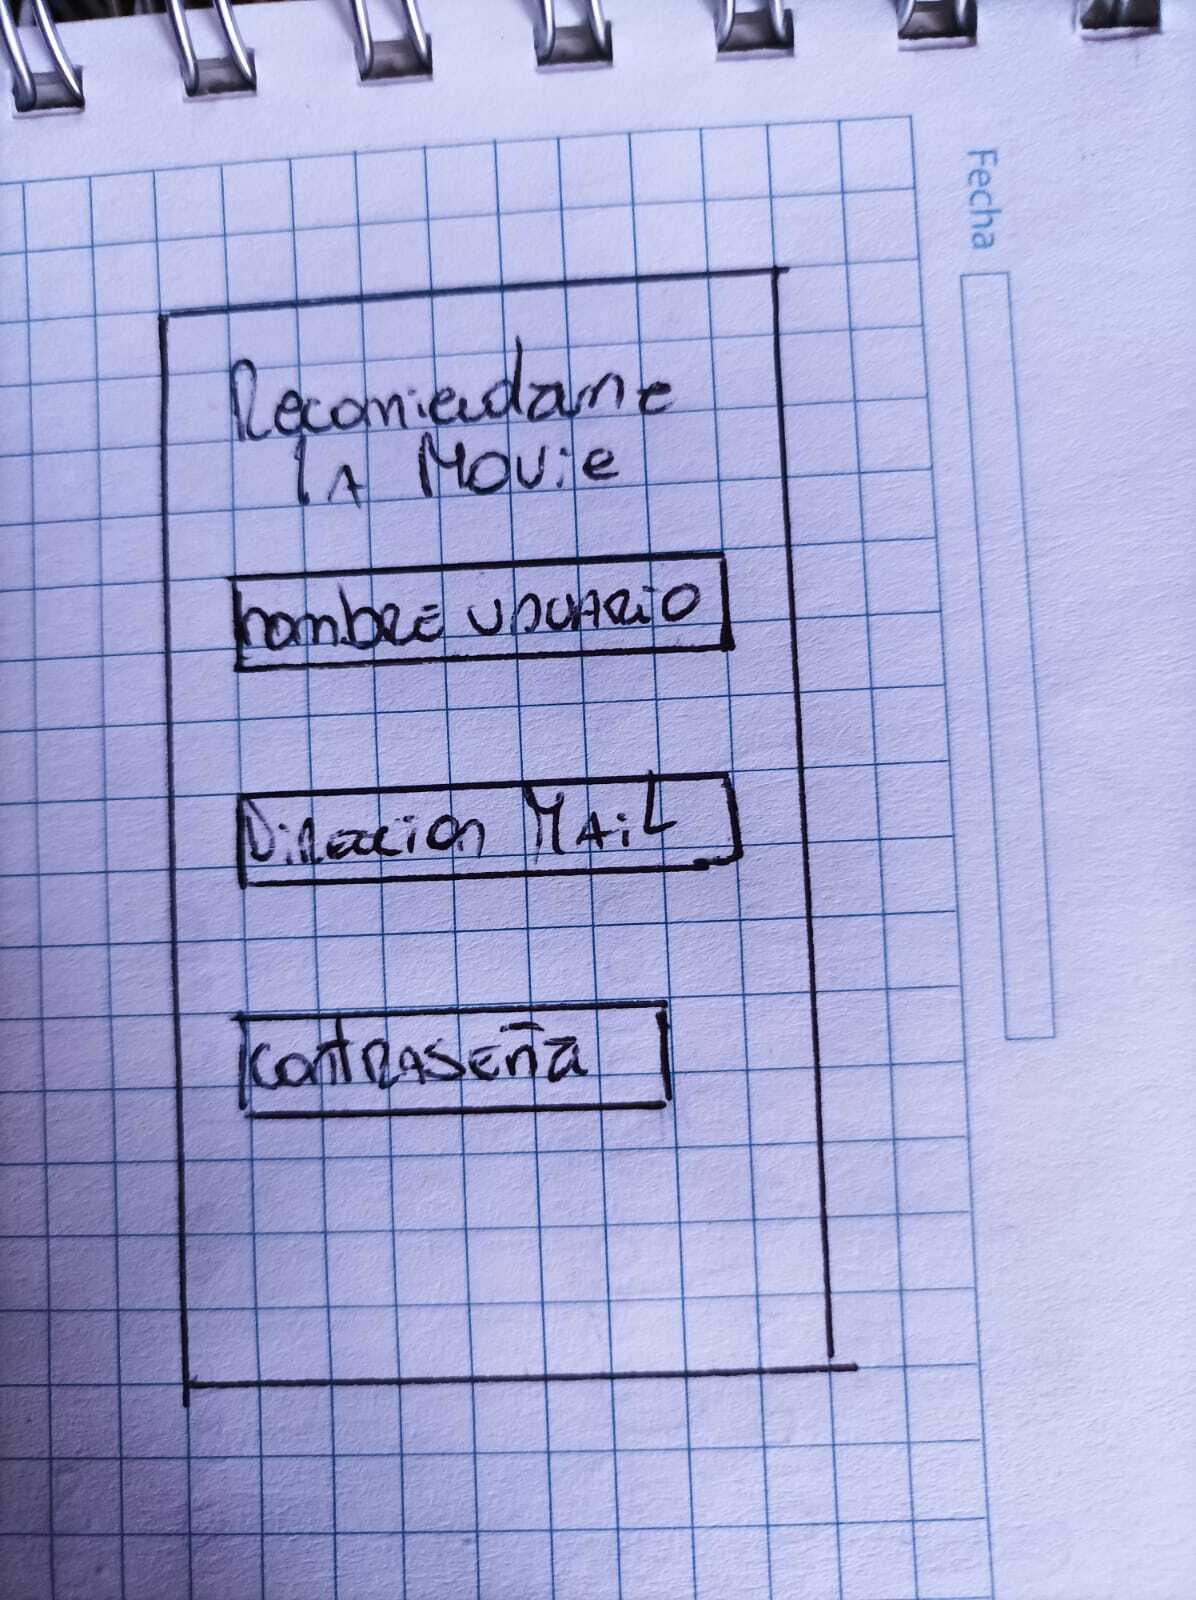 Fecha
Recomiendame
lA Movie
nombre usuARio
Direccion MAiL
contRAseña